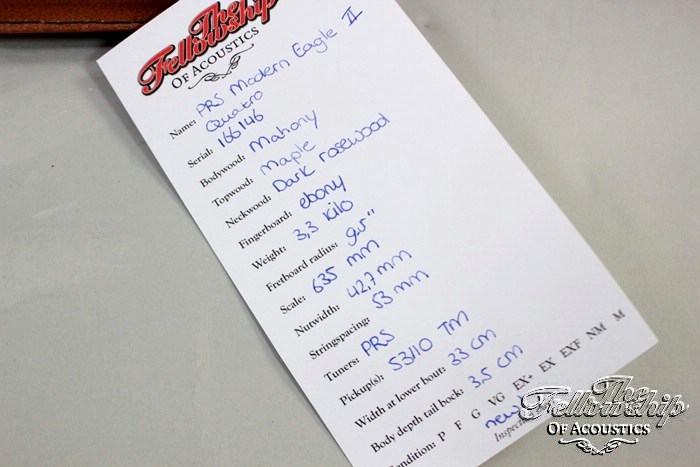 The
Fellowship
OF ACOUSTICS
Name: PRS Modern Eagle II
Quatro
Serial: 166146
Bodywood: Mahony
Topwood: Maple
Neckwood: Dark rosewood
Fingerboard: ebony
Weight: 3,3 kilo
Fretboard radius: 9.5"
Scale: 635 mm
Nutwidth: 42,7 mm
Stringspacing: 53 mm
Tuners: PRS
Pickup(s): 53/10 TM
Width at lower bout: 33 cm
Body depth tail bock: 3.5 cm
Condition: P F G VG EX+ EX EXF NM M
new
The
Fellowship
OF ACOUSTICS